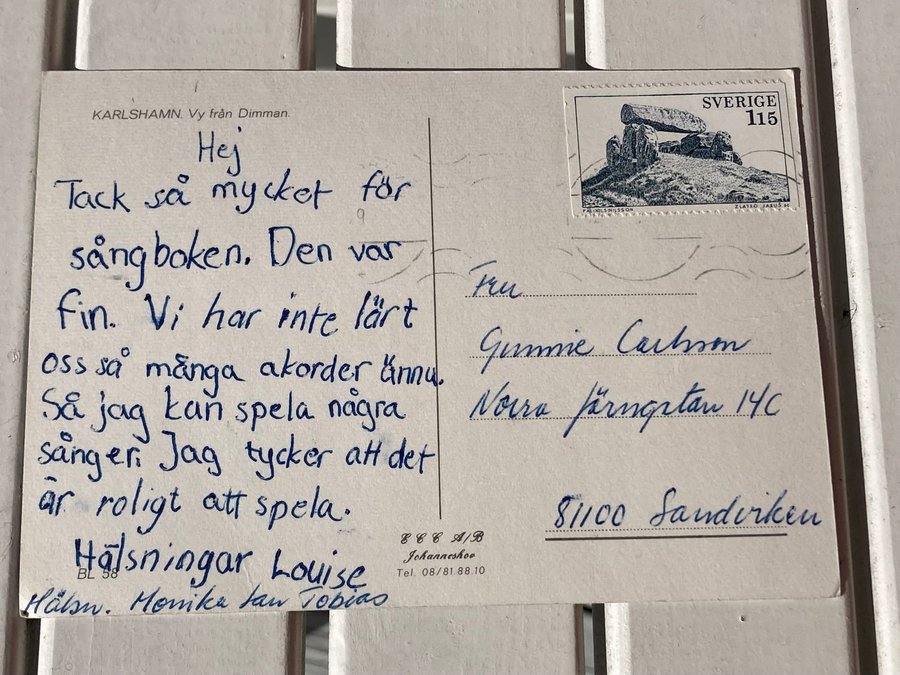 KARLSHAMN. Vy från Dimman.
Hej
Tack så mycket för
sångboken. Den var
fin. Vi har inte lärt
oss så många akorder ännu.
Så jag kan spela några
sånger. Jag tycker att det
är roligt att spela.
Hälsningar Louise
BL 58
Hälsn. Monika Jan Tobias
SVERIGE
115
PÄR NILSSON
ZLATKO JAKUS SC
Fru
Gunnie Carlsson
Norra Järngatan 14C
81100 Sandviken
ECC A/B
Johanneshov
Tel. 08/81.88.10